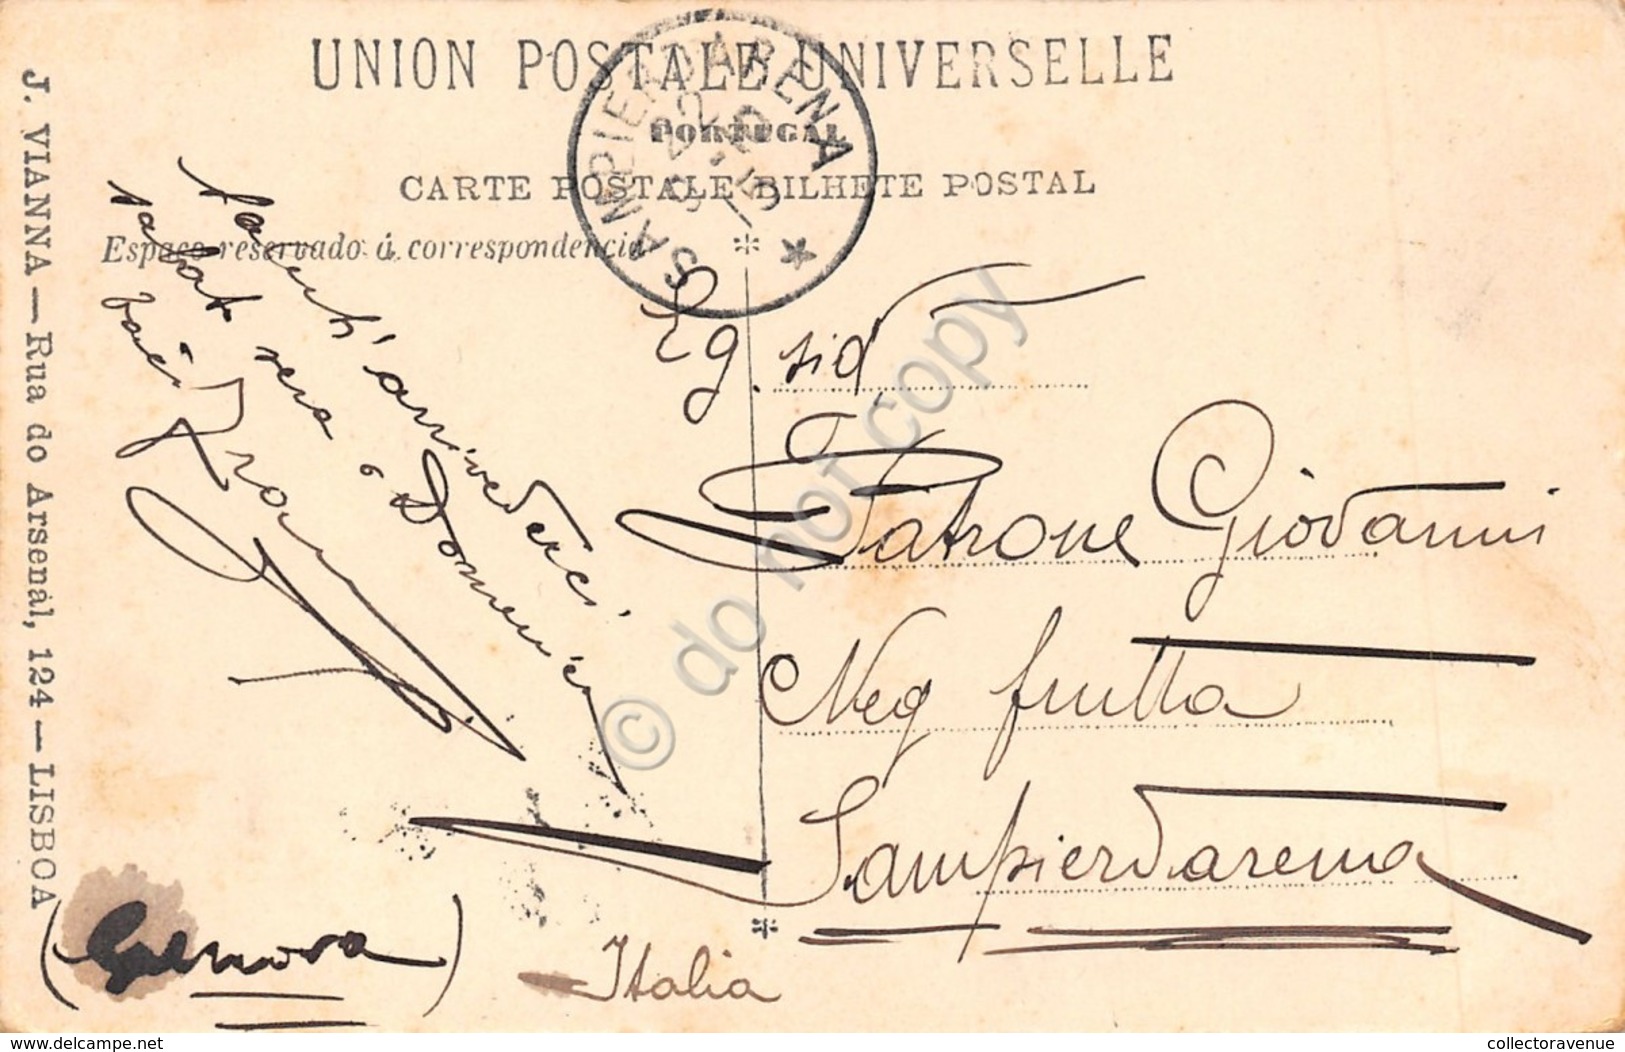 UNION POSTALE UNIVERSELLE
PORTUGAL
CARTE POSTALE BILHETE POSTAL
Espaço reservado á correspondencia
J. VIANNA — Rua do Arsenal, 124 — LISBOA
SAMPIERDARENA
22
5
l'arrivederci
sabat sera o Domenica
Eg. sig
Patrone Giovanni
Neg frutta
Sampierdarena
(Genova)
Italia
© do not copy
www.delcampe.net
collectoravenue